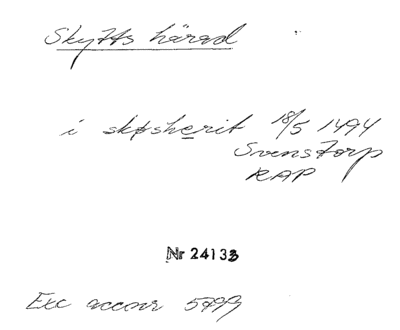 Skytts härad
i skøsherit 18/5 1494
Svenstorp
RAP
Nr 24133
Exc